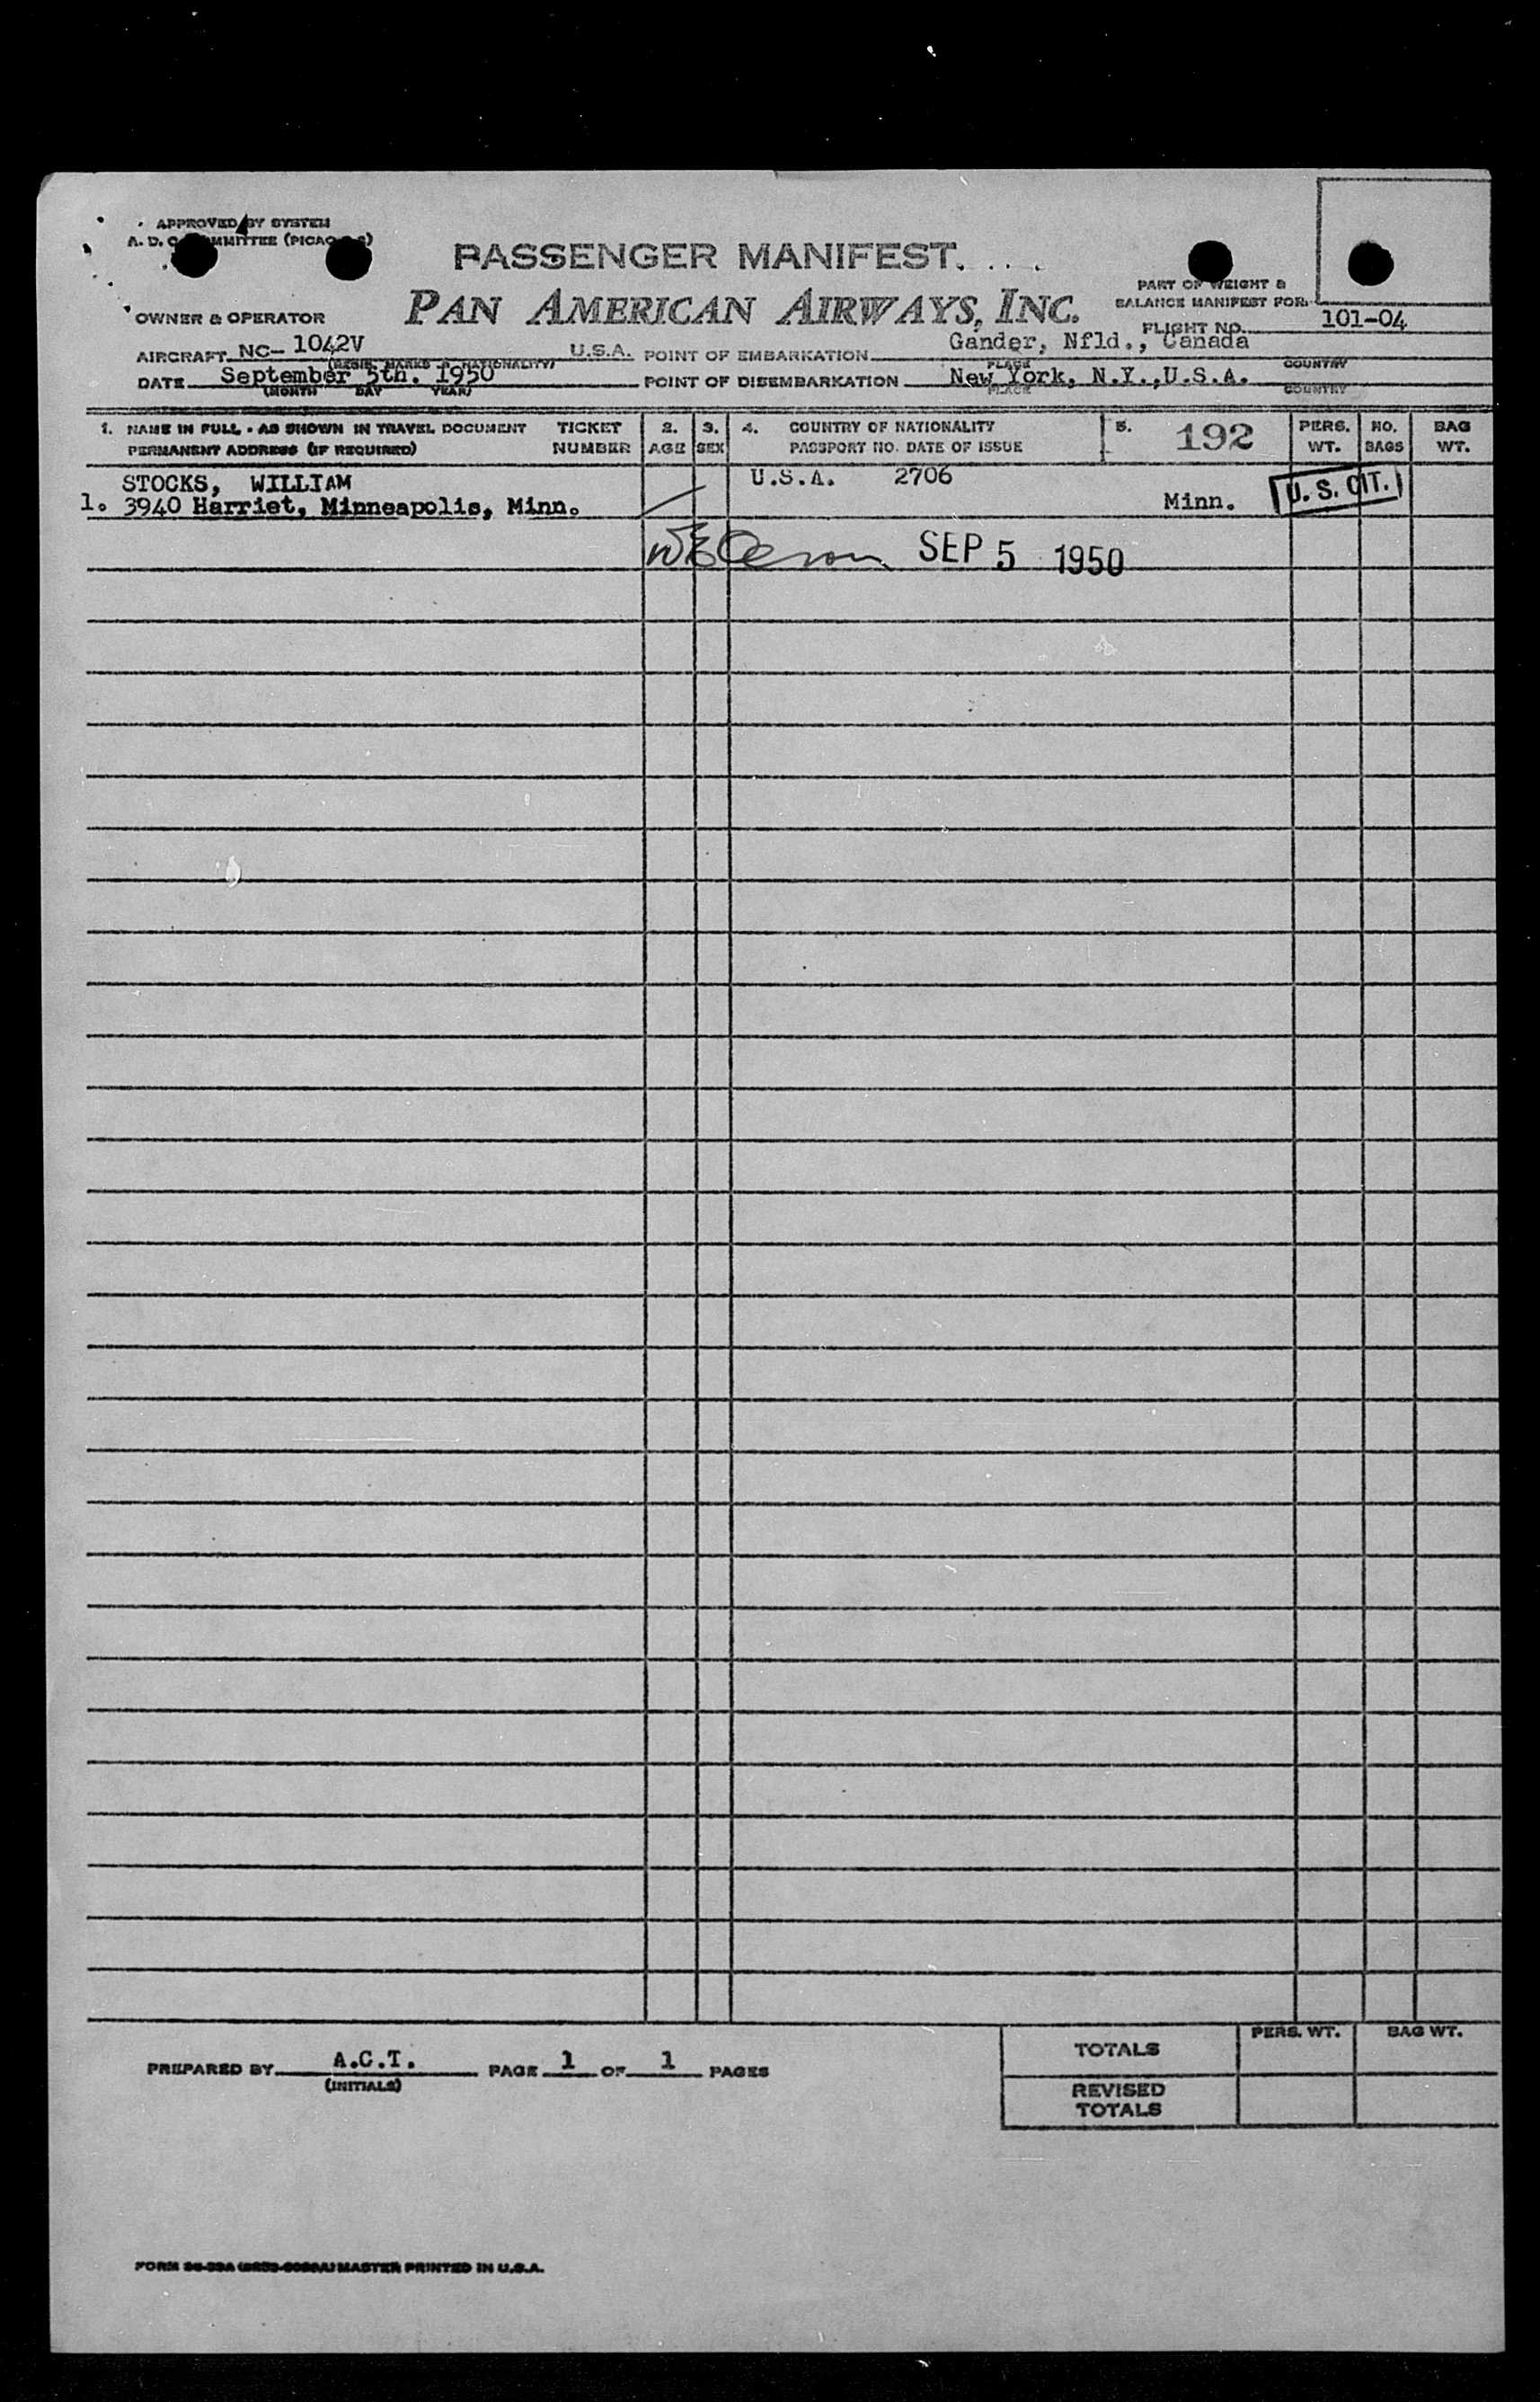 APPROVED BY SYSTEM
A. D. C. COMMITTEE (PICAO
PASSENGER MANIFEST
PAN AMERICAN AIRWAYS, INC.
PART OF WEIGHT &
BALANCE MANIFEST FOR
OWNER & OPERATOR
FLIGHT NO. 101-04
AIRCRAFT NC- 1042V U.S.A. POINT OF EMBARKATION Gander, Nfld., Canada
(REGIS. MARKS & NATIONALITY) PLACE COUNTRY
DATE September 5th. 1950 POINT OF DISEMBARKATION New York, N.Y.,U.S.A.
(MONTH DAY YEAR) PLACE COUNTRY
1. NAME IN FULL - AS SHOWN IN TRAVEL DOCUMENT TICKET 2. 3. 4. COUNTRY OF NATIONALITY 5. 192 PERS. NO. BAG
PERMANENT ADDRESS (IF REQUIRED) NUMBER AGE SEX PASSPORT NO. DATE OF ISSUE WT. BAGS WT.
STOCKS, WILLIAM U.S.A. 2706
1. 3940 Harriet, Minneapolis, Minn. Minn. U. S. CIT.
SEP 5 1950
PERS. WT. BAG WT.
TOTALS
PREPARED BY A.C.T. PAGE 1 OF 1 PAGES
(INITIALS)
REVISED
TOTALS
FORM MASTER PRINTED IN U.S.A.